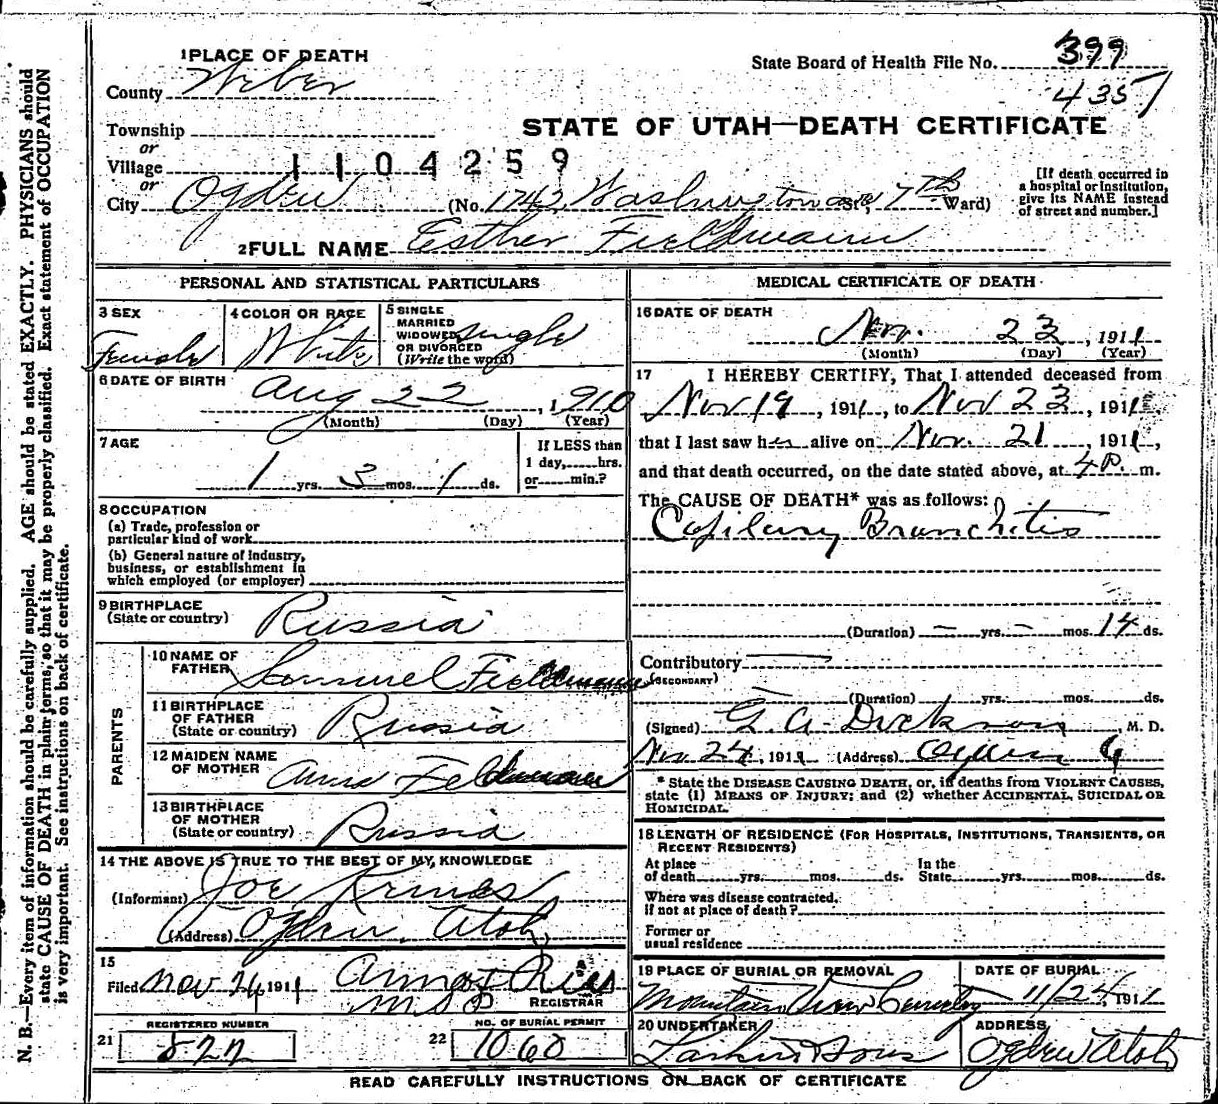 1 PLACE OF DEATH
County Weber
State Board of Health File No. 399
4357
Township
or
Village
1104259
STATE OF UTAH—DEATH CERTIFICATE
or
City Ogden (No. 1742 Washington ave St.; 7th Ward)
[If death occurred in
a hospital or institution,
give its NAME instead
of street and number.]
2 FULL NAME Esther Fieldmann
PERSONAL AND STATISTICAL PARTICULARS
3 SEX
Female
4 COLOR OR RACE
White
5 SINGLE
MARRIED
WIDOWED
OR DIVORCED
(Write the word)
Single
6 DATE OF BIRTH
Aug 22, 1910
(Month) (Day) (Year)
7 AGE
1 yrs. 3 mos. 1 ds.
If LESS than
1 day, hrs.
or min.?
8 OCCUPATION
(a) Trade, profession or
particular kind of work
(b) General nature of industry,
business, or establishment in
which employed (or employer)
9 BIRTHPLACE
(State or country) Russia
PARENTS
10 NAME OF
FATHER Samuel
11 BIRTHPLACE
OF FATHER
(State or country) Russia
12 MAIDEN NAME
OF MOTHER Anna
13 BIRTHPLACE
OF MOTHER
(State or country) Russia
14 THE ABOVE IS TRUE TO THE BEST OF MY KNOWLEDGE
(Informant) Joe
(Address) Ogden, Utah
15
Filed Nov 26 1911
REGISTRAR
REGISTERED NUMBER
21 822
NO. OF BURIAL PERMIT
22 1060
MEDICAL CERTIFICATE OF DEATH
16 DATE OF DEATH
Nov. 23, 1911
(Month) (Day) (Year)
17 I HEREBY CERTIFY, That I attended deceased from
Nov 19, 1911, to Nov 23, 1911
that I last saw her alive on Nov. 21, 1911,
and that death occurred, on the date stated above, at 4 P. m.
The CAUSE OF DEATH* was as follows:
Capilary Bronchitis
(Duration) – yrs. – mos. 14 ds.
Contributory
(SECONDARY)
(Duration) yrs. mos. ds.
(Signed) G. A. Dickson, M. D.
Nov 24, 1911 (Address) Ogden
* State the DISEASE CAUSING DEATH, or, in deaths from VIOLENT CAUSES,
state (1) MEANS OF INJURY; and (2) whether ACCIDENTAL, SUICIDAL OR
HOMICIDAL.
18 LENGTH OF RESIDENCE (FOR HOSPITALS, INSTITUTIONS, TRANSIENTS, OR
RECENT RESIDENTS)
At place
of death yrs. mos. ds.
In the
State yrs. mos. ds.
Where was disease contracted,
if not at place of death?
Former or
usual residence
19 PLACE OF BURIAL OR REMOVAL
Mountain View Cemetery
DATE OF BURIAL
11/24, 1911
20 UNDERTAKER
Larkin & Sons
ADDRESS
Ogden Utah
READ CAREFULLY INSTRUCTIONS ON BACK OF CERTIFICATE
N. B.—Every item of information should be carefully supplied. AGE should be stated EXACTLY. PHYSICIANS should
state CAUSE OF DEATH in plain terms, so that it may be properly classified. Exact statement of OCCUPATION
is very important. See instructions on back of certificate.